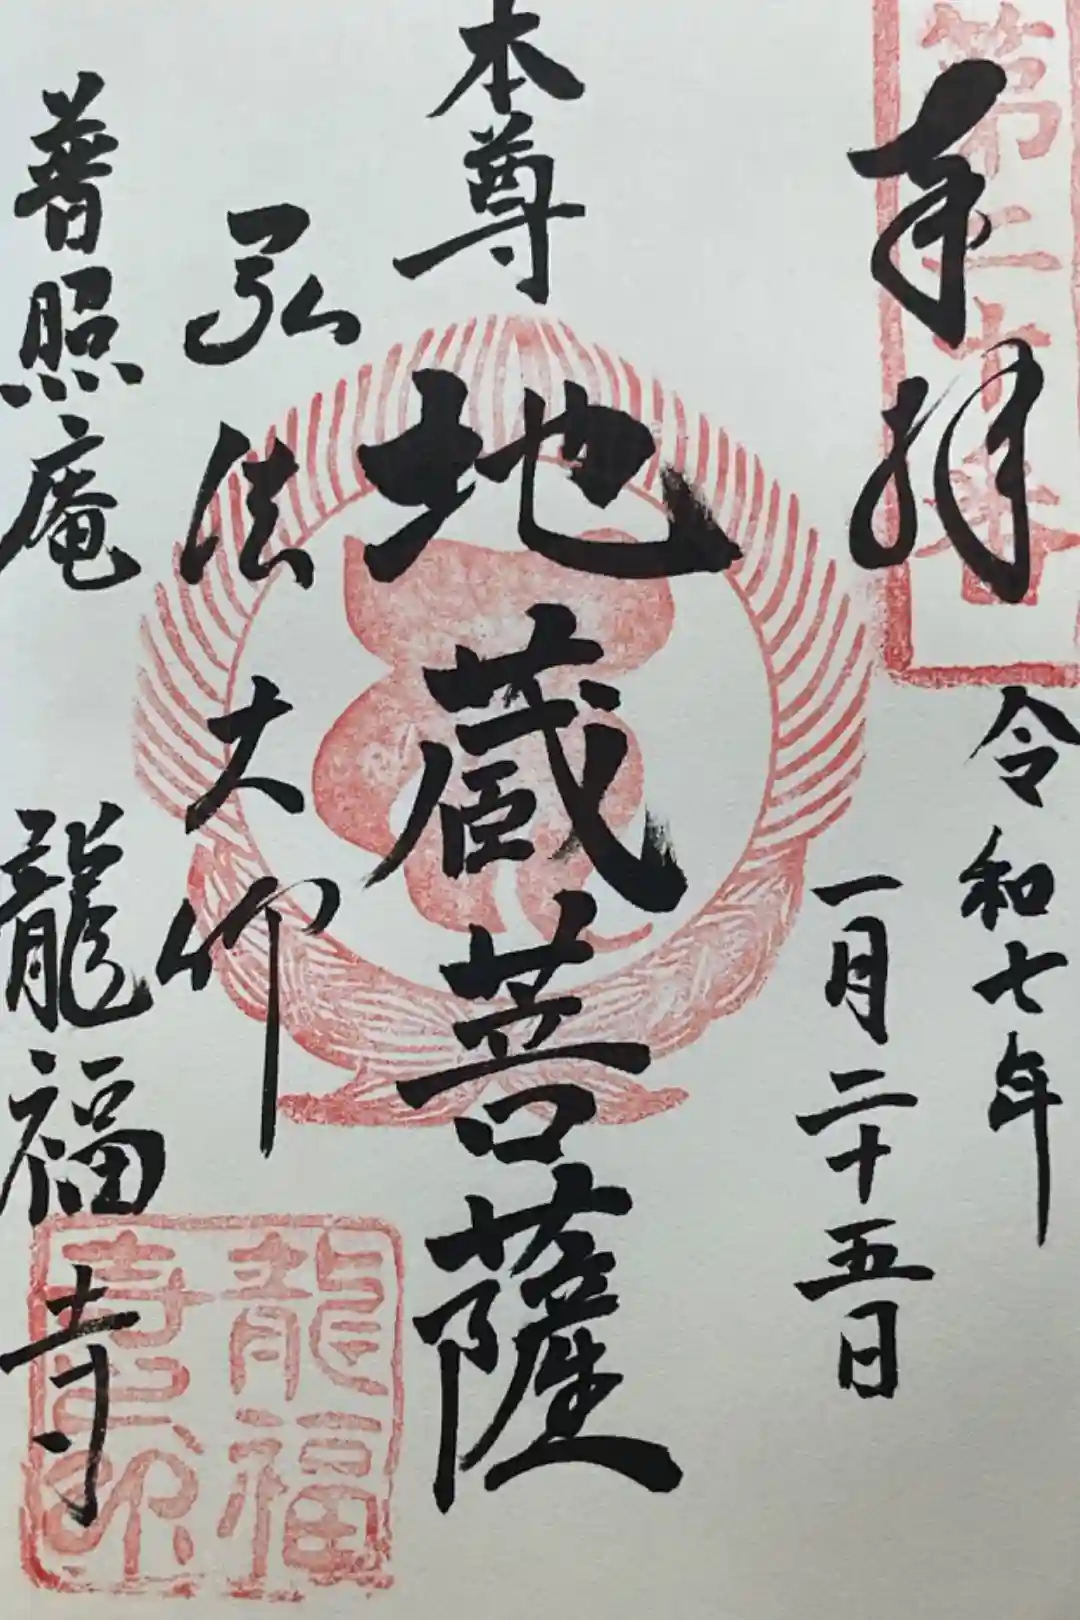 奉拝
第二十番
令和七年
一月二十五日
本尊
地蔵菩薩
弘法大師
普照庵
龍福寺
龍福
寺印